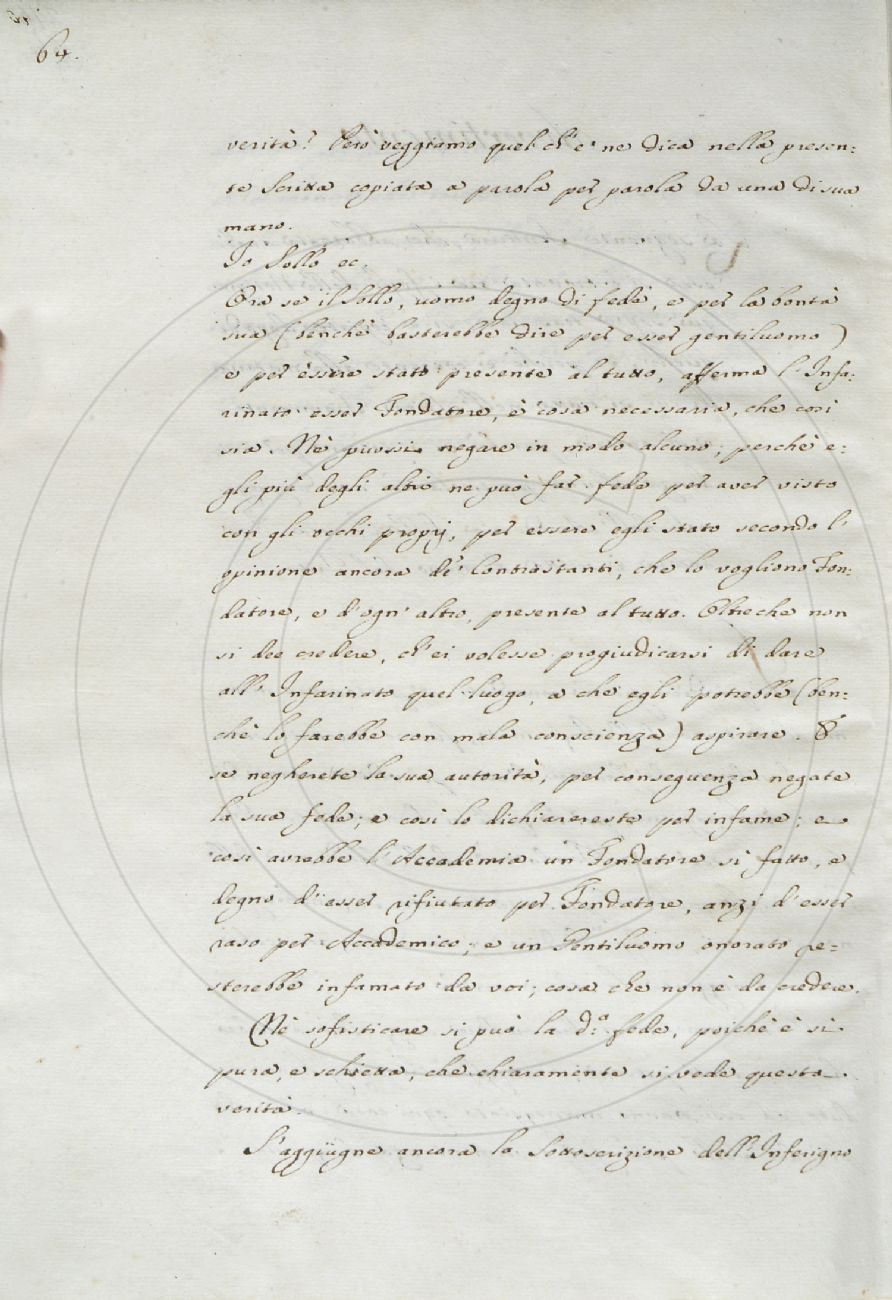 64.
verità? Però veggiamo quel ch'e' ne dica nella presen:
te Scritta copiata a parola per parola da una di sua
mano.
Io Sollo ec.
Ora se il Sollo, uomo degno di fede, e per la bontà
sua (benchè basterebbe dire per esser gentiluomo)
e per essere stato presente al tutto, afferma l'Infa:
rinato esser Fondatore, è cosa necessaria, che così
sia. Nè puossi negare in modo alcuno; perchè e:
gli più degli altri ne può far fede per aver visto
con gli occhi proprj, per essere egli stato secondo l'
opinione ancora de' Contrastanti, che lo vogliono Fon:
datore, e d'ogn'altro, presente al tutto. Oltreche non
si dee credere, ch'ei volesse progiudicarsi di dare
all'Infarinato quel luogo, a che egli potrebbe (ben:
chè lo farebbe con mala conscienza) aspirare. E
se negherete la sua autorità, per conseguenza negate
la sua fede; e così lo dichiarereste per infame; e
così avrebbe l'Accademia un Fondatore sì fatto, e
degno d'esser rifiutato per Fondatore, anzi d'esser
raso per Accademico; e un Gentiluomo onorato re=
sterebbe infamato da voi; cosa che non è da credere.
Nè sofisticare si può la d.ª fede, poichè è sì
pura, e schietta, che chiaramente si vede questa
verità.
S'aggiugne ancora la Sottoscrizione dell'Inferigno